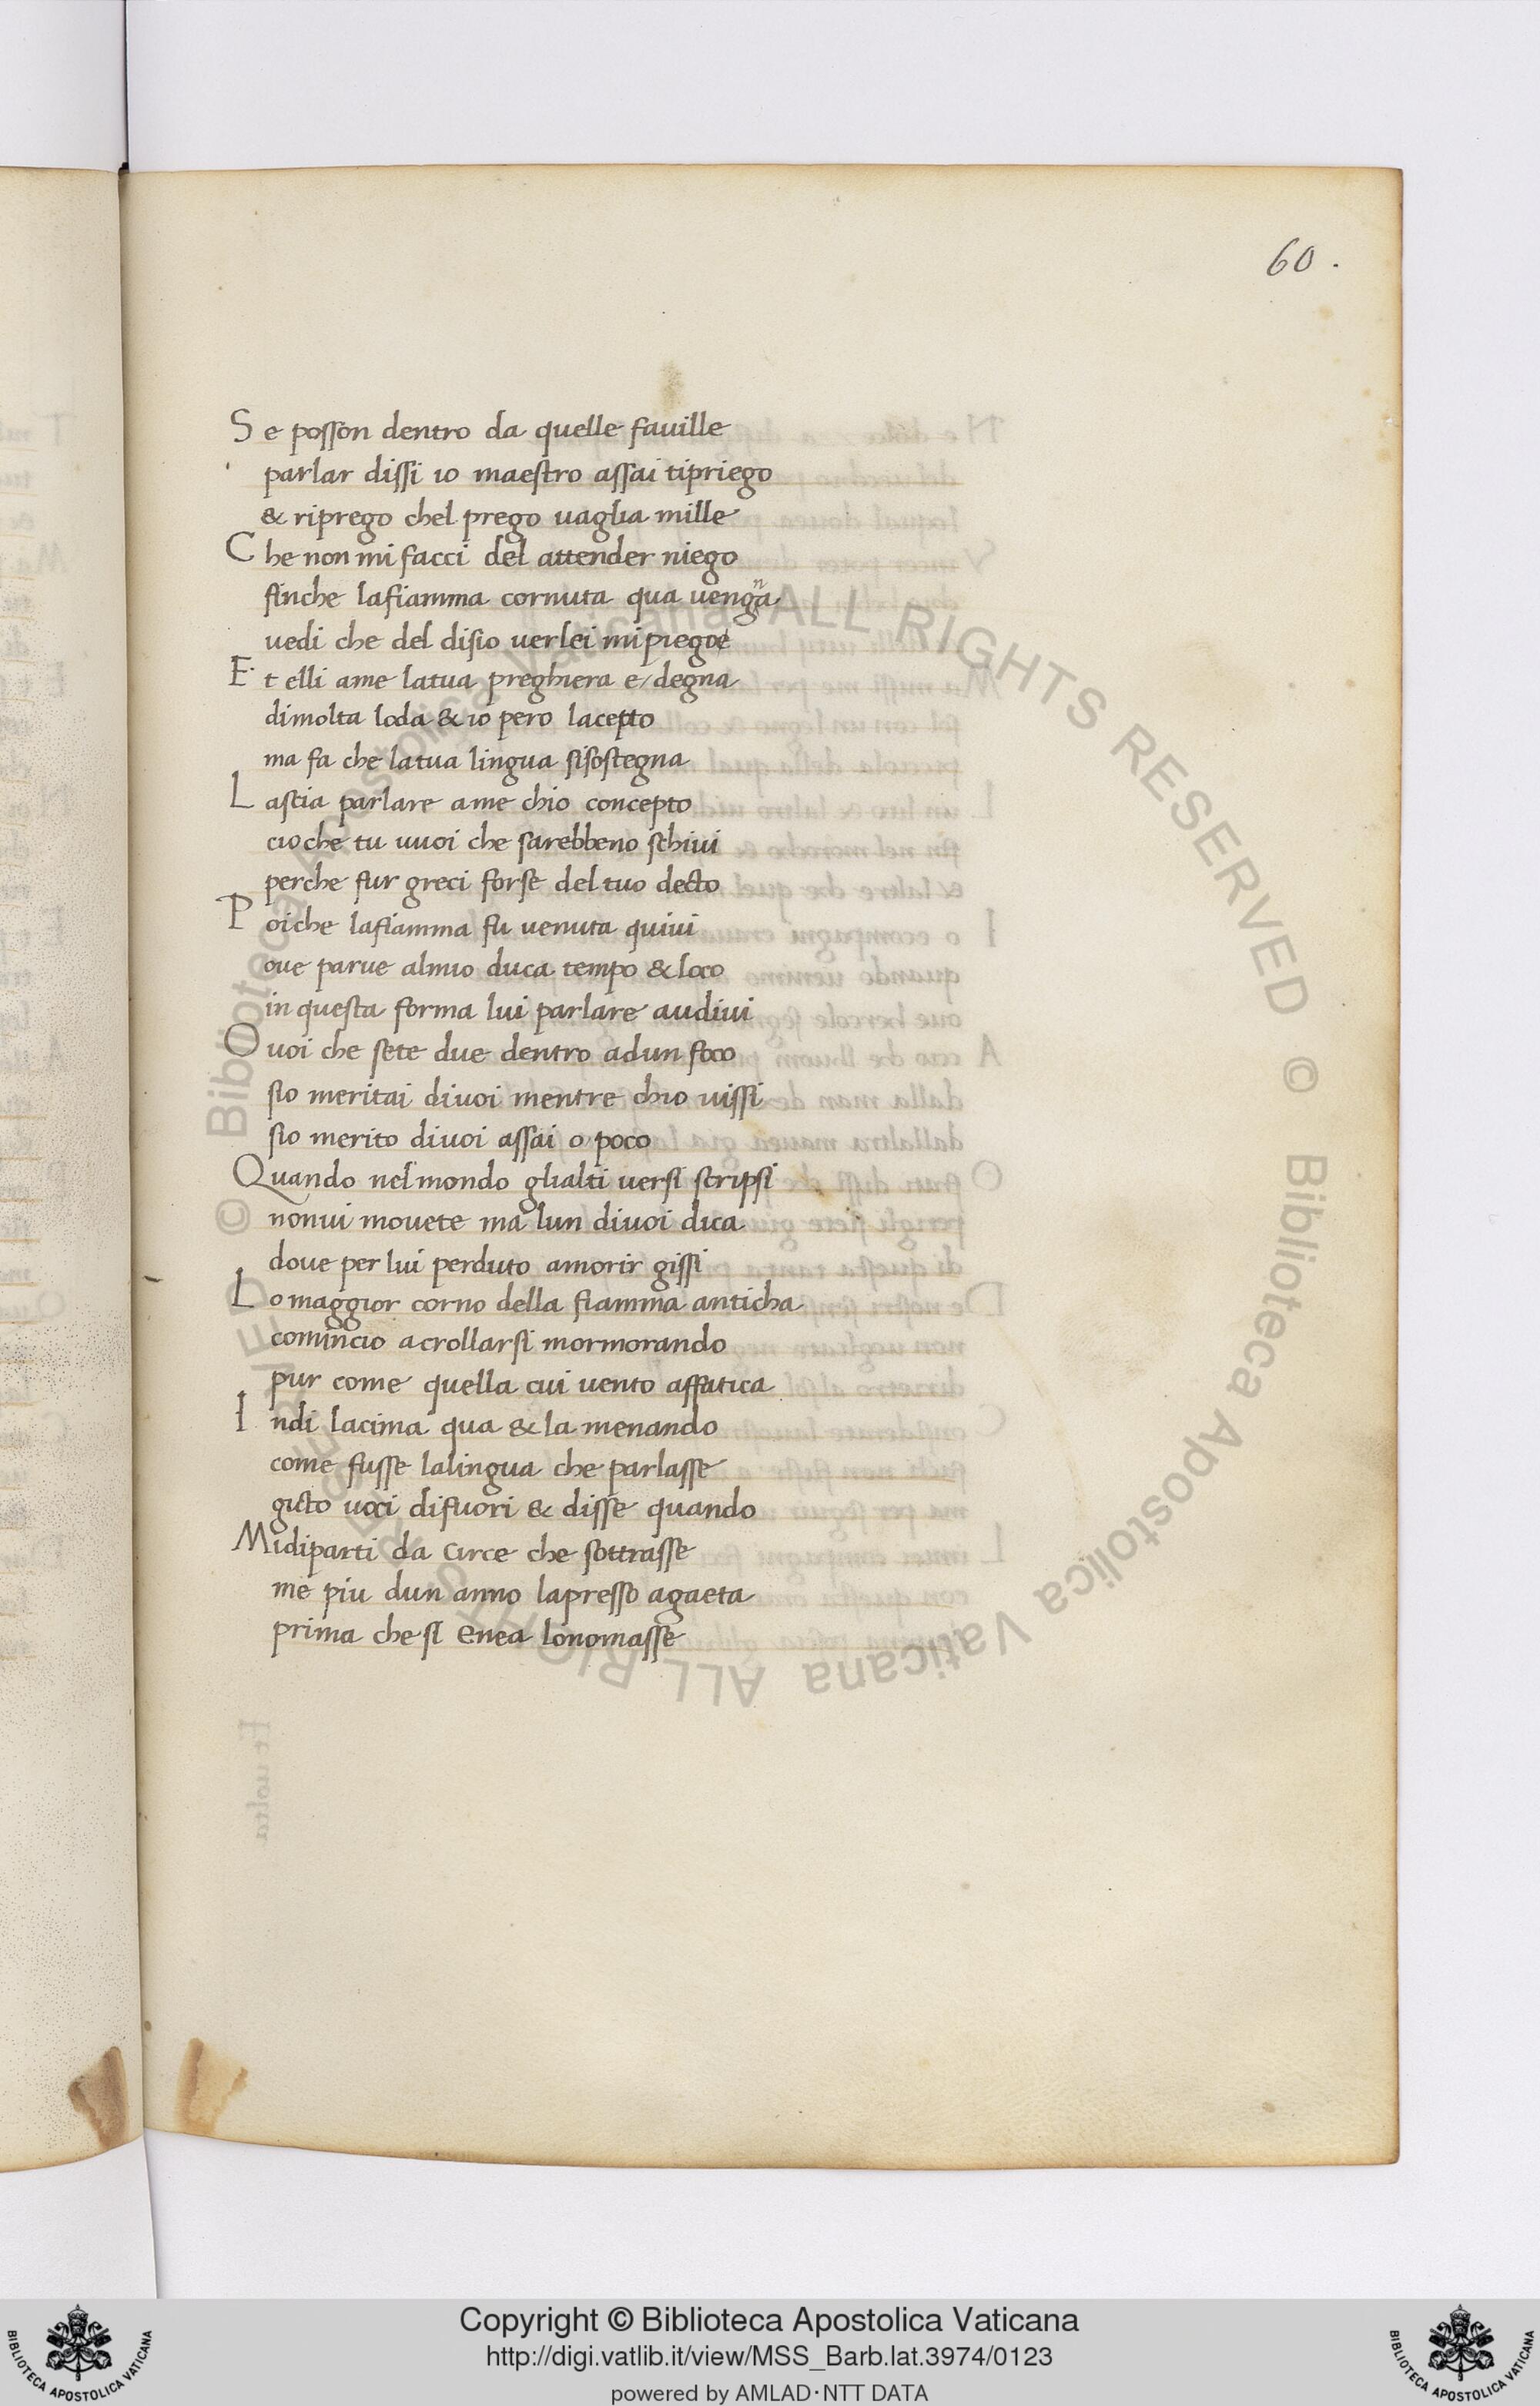 60.
Se posson dentro da quelle fauille
parlar dissi io maestro assai tipriego
& riprego chel prego uaglia mille
Che non mi facci del attender niego
finche lafiamma cornuta qua uengna
uedi che del disio uerlei mipiegoe
Et elli ame latua preghiera e/degna
dimolta loda & io pero lacepto
ma fa che latua lingua sisostegna
Lastia parlare ame chio concepto
cioche tu uuoi che sarebbeno schiui
perche fur greci forse del tuo decto
Poiche lafiamma fu uenuta quiui
oue parue almio duca tempo & loco
in questa forma lui parlare audiui
O uoi che sete due dentro adun foco
sio meritai diuoi mentre chio uissi
sio merito diuoi assai o poco
Quando nel mondo glialti uersi scripsi
nonui mouete ma lun diuoi dica
doue per lui perduto amorir gissi
Lo maggior corno della fiamma anticha
comincio acrollarsi mormorando
pur come quella cui uento affatica
Indi lacima qua & la menando
come fusse lalingua che parlasse
gicto uoci difuori & disse quando
Midiparti da Circe che sottrasse
me piu dun anno lapresso agaeta
prima che si Enea lonomasse
© Biblioteca Apostolica Vaticana ALL RIGHTS RESERVED © Biblioteca Apostolica Vaticana ALL RIGHTS RESERVED
Copyright © Biblioteca Apostolica Vaticana
http://digi.vatlib.it/view/MSS_Barb.lat.3974/0123
powered by AMLAD·NTT DATA
BIBLIOTECA APOSTOLICA VATICANA
BIBLIOTECA APOSTOLICA VATICANA